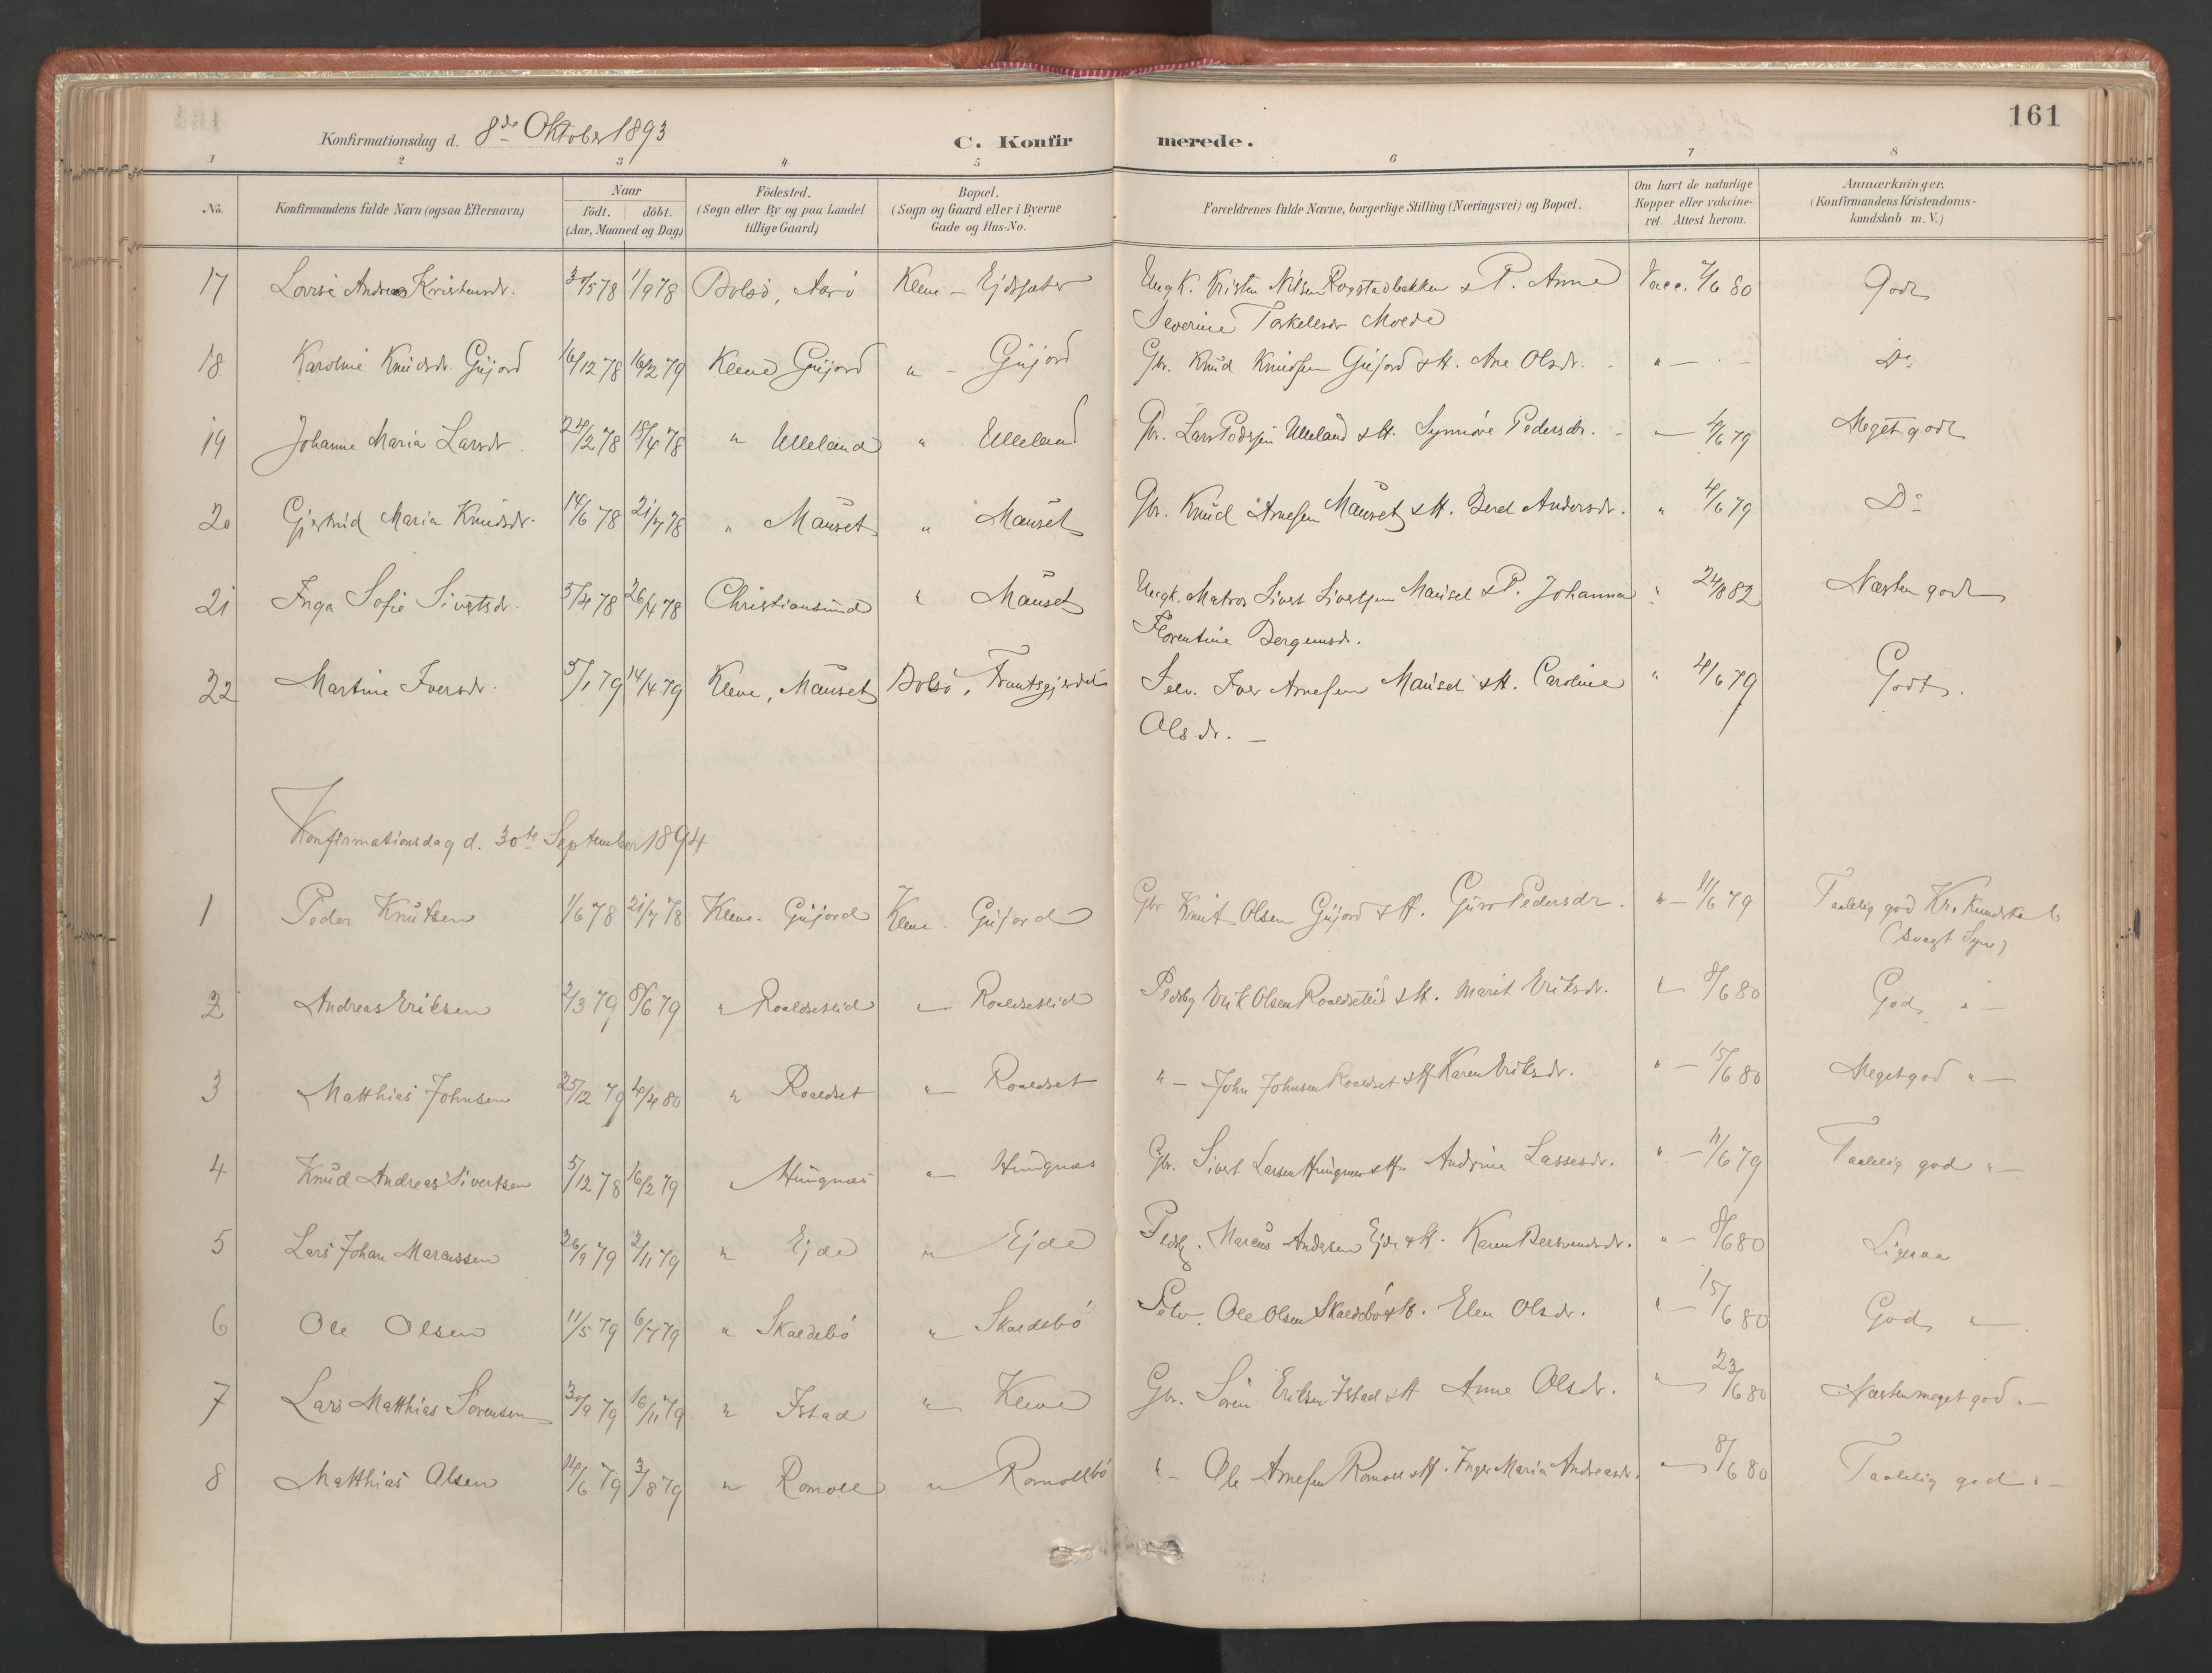 161
Konfirmationsdag d. 8de Oktober 1893
C. Konfirmerede.
1 2 3 4 5 6 7 8
No. Konfirmandens fulde Navn (ogsaa Efternavn) Naar født. døbt. (Aar, Maaned og Dag) Födested. (Sogn eller By og paa Landet tillige Gaard) Bopæl. (Sogn og Gaard eller i Byerne Gade og Hus-No. Forældrenes fulde Navne, borgerlige Stilling (Næringsvei) og Bopæl. Om havt de naturlige Kopper eller vakcineret. Attest herom. Anmærkninger. (Konfirmandens Kristendomskundskab m. V.)
17 Lovise Andrea Kristensdr. 30/5 78 1/9 78 Bolsö, Aarö Kleve - Ejdsæter Ungk. Kristen Nilsen Rogstadbakken & P. Anne Vacc. 7/6 80 Godt
Severine Torkelsdr Molde
18 Karoline Knudsdr. Gujord 16/12 78 16/2 79 Kleve Gujord " - Gujord Gbr. Knud Knudsen Gujord & H. Ane Olsdr. - " - Do
19 Johanne Maria Larsdr. 24/2 78 18/4 78 " Ulleland " Ulleland Gbr. Lars Pedersen Ulleland & H. Synnöve Pedersdr. - - 4/6 79 Meget godt
20 Gjertrud Maria Knudsdr. 14/6 78 21/7 78 " Mauset " Mauset Gbr. Knud Arnesen Mauset & H. Beret Andersdr. " 4/6 79 Do
21 Inga Sofie Sivertsdr. 5/4 78 26/4 78 Christiansund " Mauset Ungk. Matros Sivert Sivertsen Mauset & P. Johanna " 24/8 82 Næsten godt
Florentine Bergensdr.
22 Martine Iversdr. 5/1 79 14/4 79 Kleve, Mauset Bolsö, Frantsgjerdet Selv. Iver Arnesen Mauset & H. Caroline " 4/6 79 Godt.
Olsdr. -
Konfirmationsdag d. 30te September 1894
1 Peder Knutsen 1/6 78 21/7 78 Kleve. Gujord Kleve. Gujord Gbr Knut Olsen Gujord & H. Guro Pedersdr. " - 11/6 79 Taalelig god Kr. Kundskab
(svagt Syn)
2 Andreas Eriksen 2/3 79 8/6 79 " Roaldsetlid " Roaldsetlid Pladsbg Erik Olsen Roaldsetlid & H. Marit Eriksdr. " 8/6 80 God " -
3 Matthias Johnsen 25/12 79 4/4 80 " Roaldset " Roaldset " - John Johnsen Roaldset & H Karen Eriksdr. " - 15/6 80 Meget god " -
4 Knud Andreas Sivertsen 5/12 78 16/2 79 " Hungnæs " Hungnæs Gbr. Sivert Larsen Hungnes & H. Andrine Lassesdr. " - 11/6 79 Taalelig god " -
5 Lars Johan Marcussen 26/9 79 2/11 79 " Ejde " Ejde Pladsbg. Marcus Andersen Ejde & H. Karen Bersvendsdr. " - 8/6 80 Ligesaa
6 Ole Olsen 11/5 79 6/7 79 " Skaldebö " Skaldebö Selv. Ole Olsen Skaldebö & H. Elen Olsdr. " - 15/6 80 God " -
7 Lars Matthias Sörensen 30/9 79 16/11 79 " Istad " Kleve Gbr. Sören Eriksen Istad & H Anne Olsdr. " 23/6 80 Næsten meget god " -
8 Matthias Olsen 14/6 79 3/8 79 " Romoll " Romollbö " - Ole Arnesen Romoll & H. Inger Maria Andreasdr. " 8/6 80 Taalelig god " -